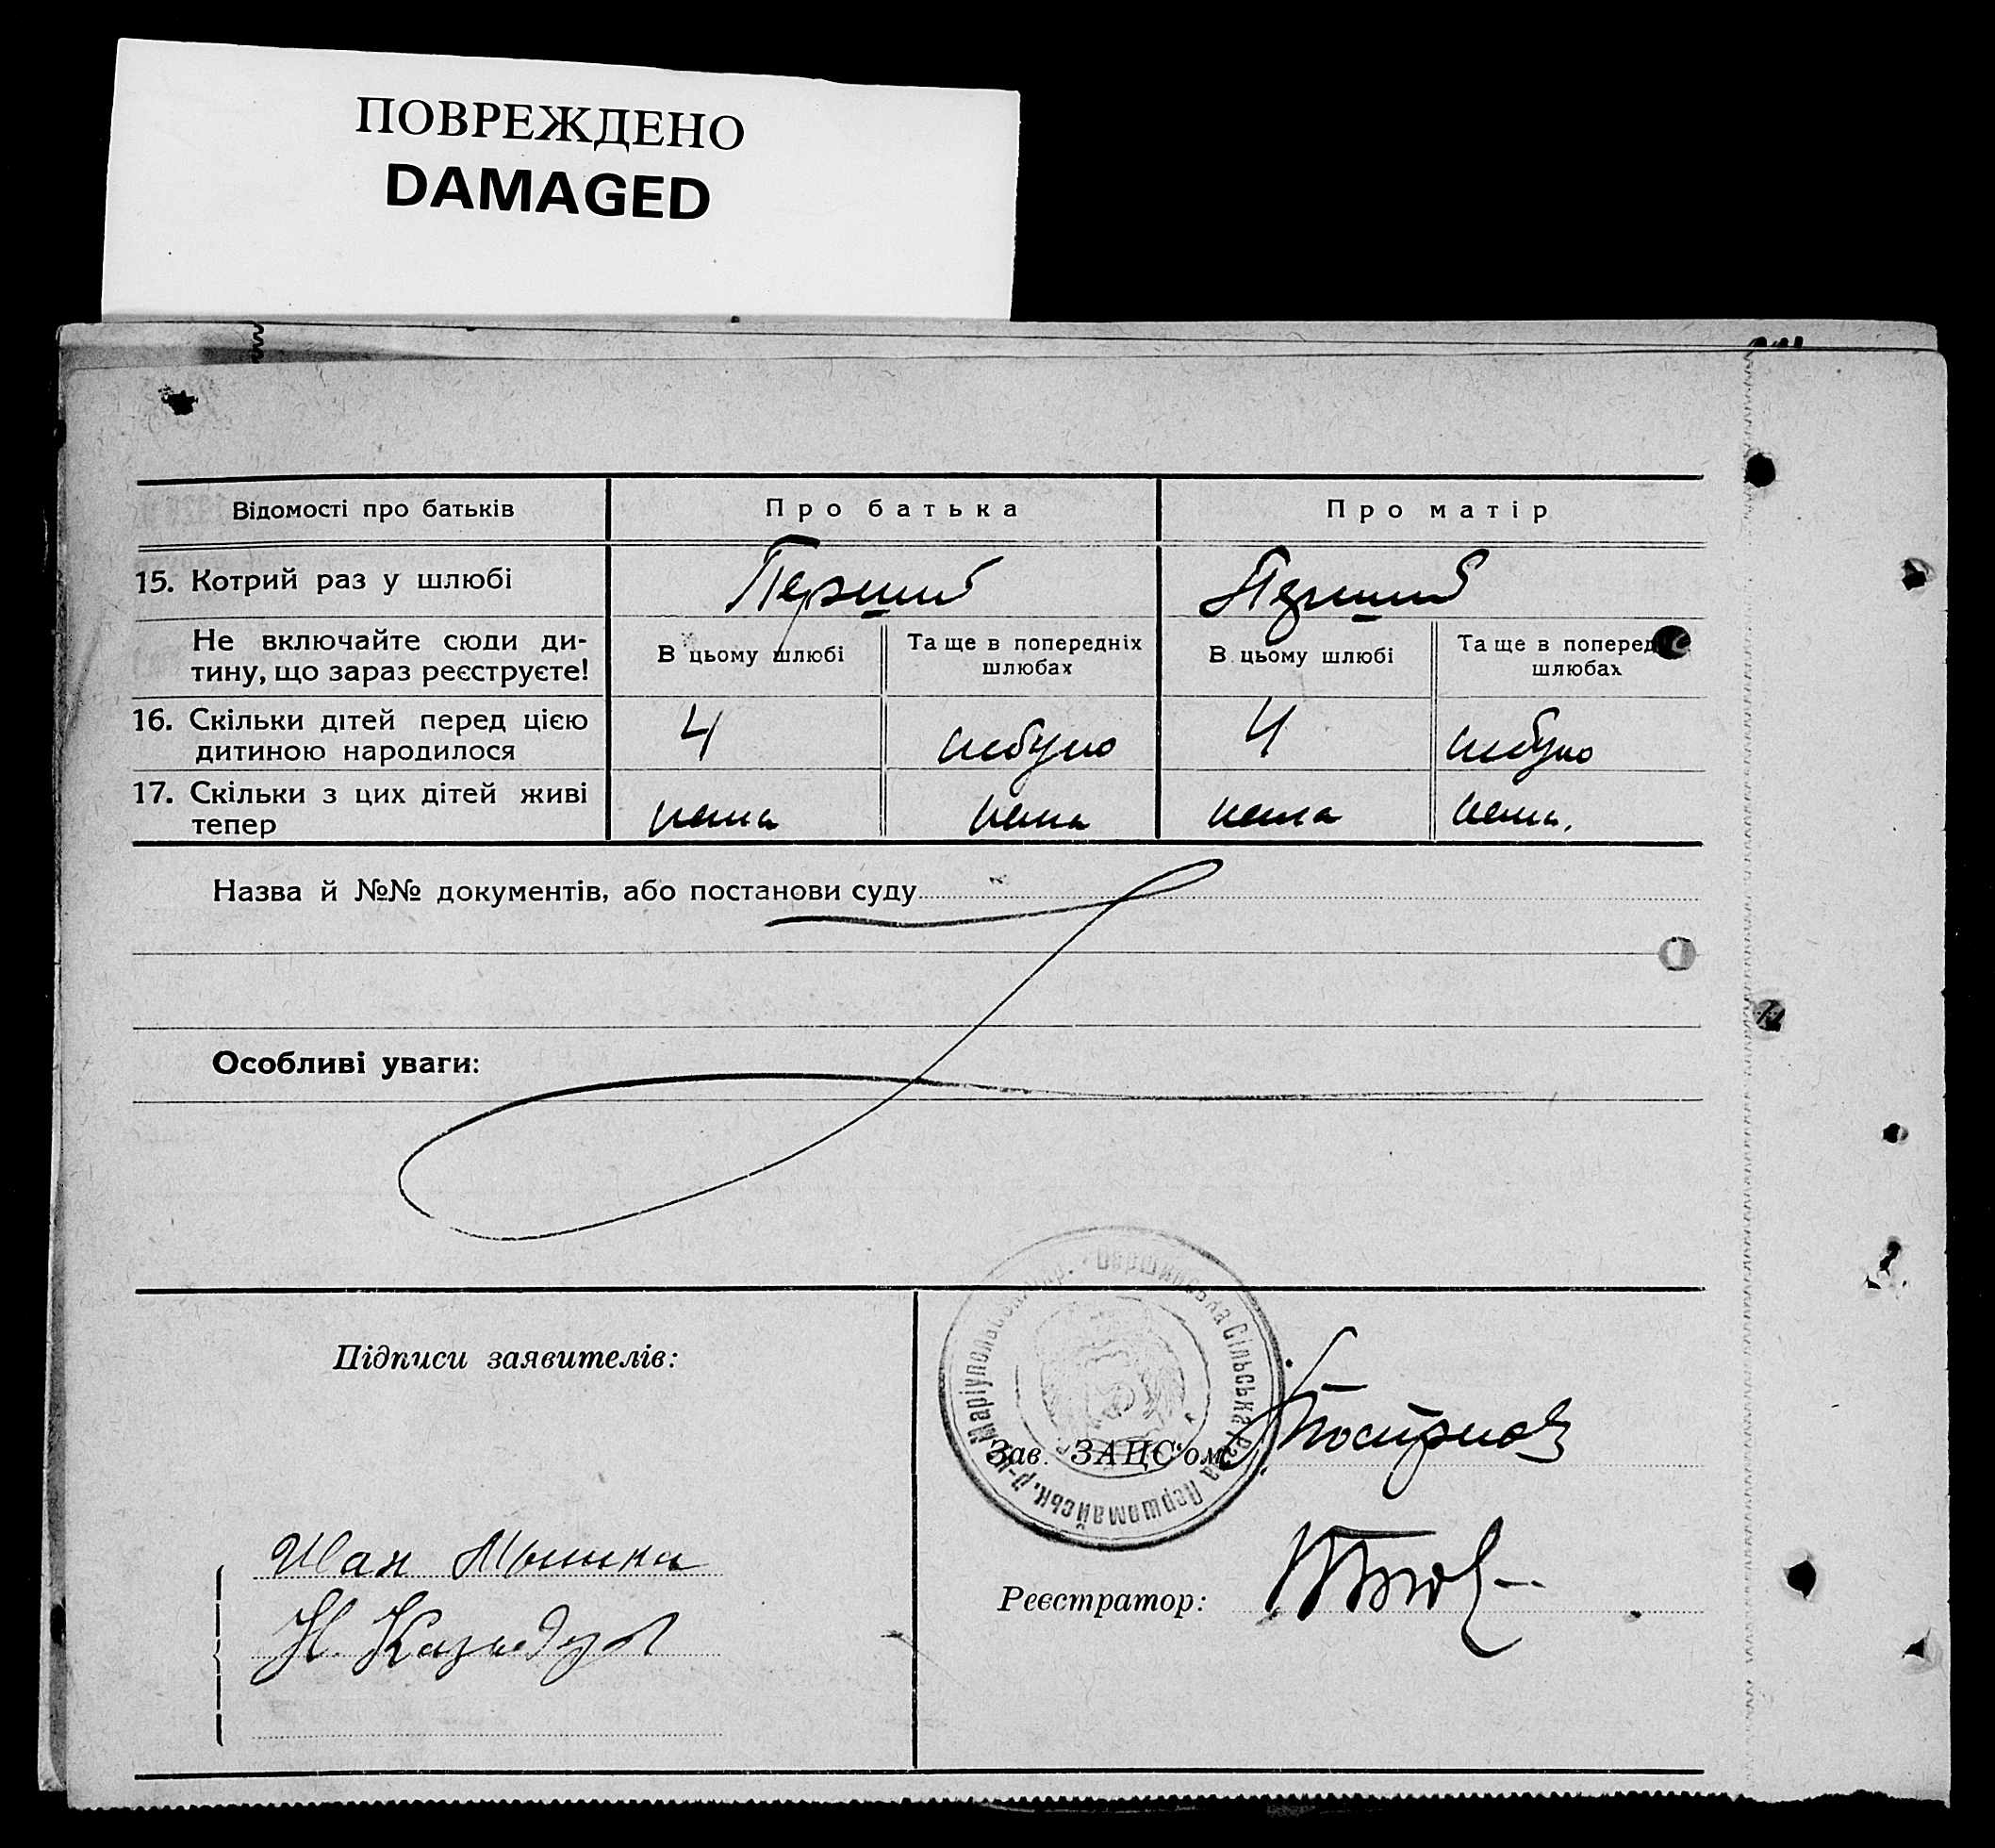 ПОВРЕЖДЕНО
DAMAGED
Відомості про батьків
Про батька
Про матір
15. Котрий раз у шлюбі
Перший
Перший
Не включайте сюди ди-
тину, що зараз реєструєте!
В цьому шлюбі
Та ще в попередніх
шлюбах
В цьому шлюбі
Та ще в поперед
шлюбах
16. Скільки дітей перед цією
дитиною народилося
4
небуло
4
небуло
17. Скільки з цих дітей живі
тепер
нема
нема
нема
нема.
Назва й №№ документів, або постанови суду
Особливі уваги:
Підписи заявителів:
Сільська Рада Першомайськ. р-ну Маріупольської
Зав. ЗАЦС'ом
Реєстратор:
Шах
Н.